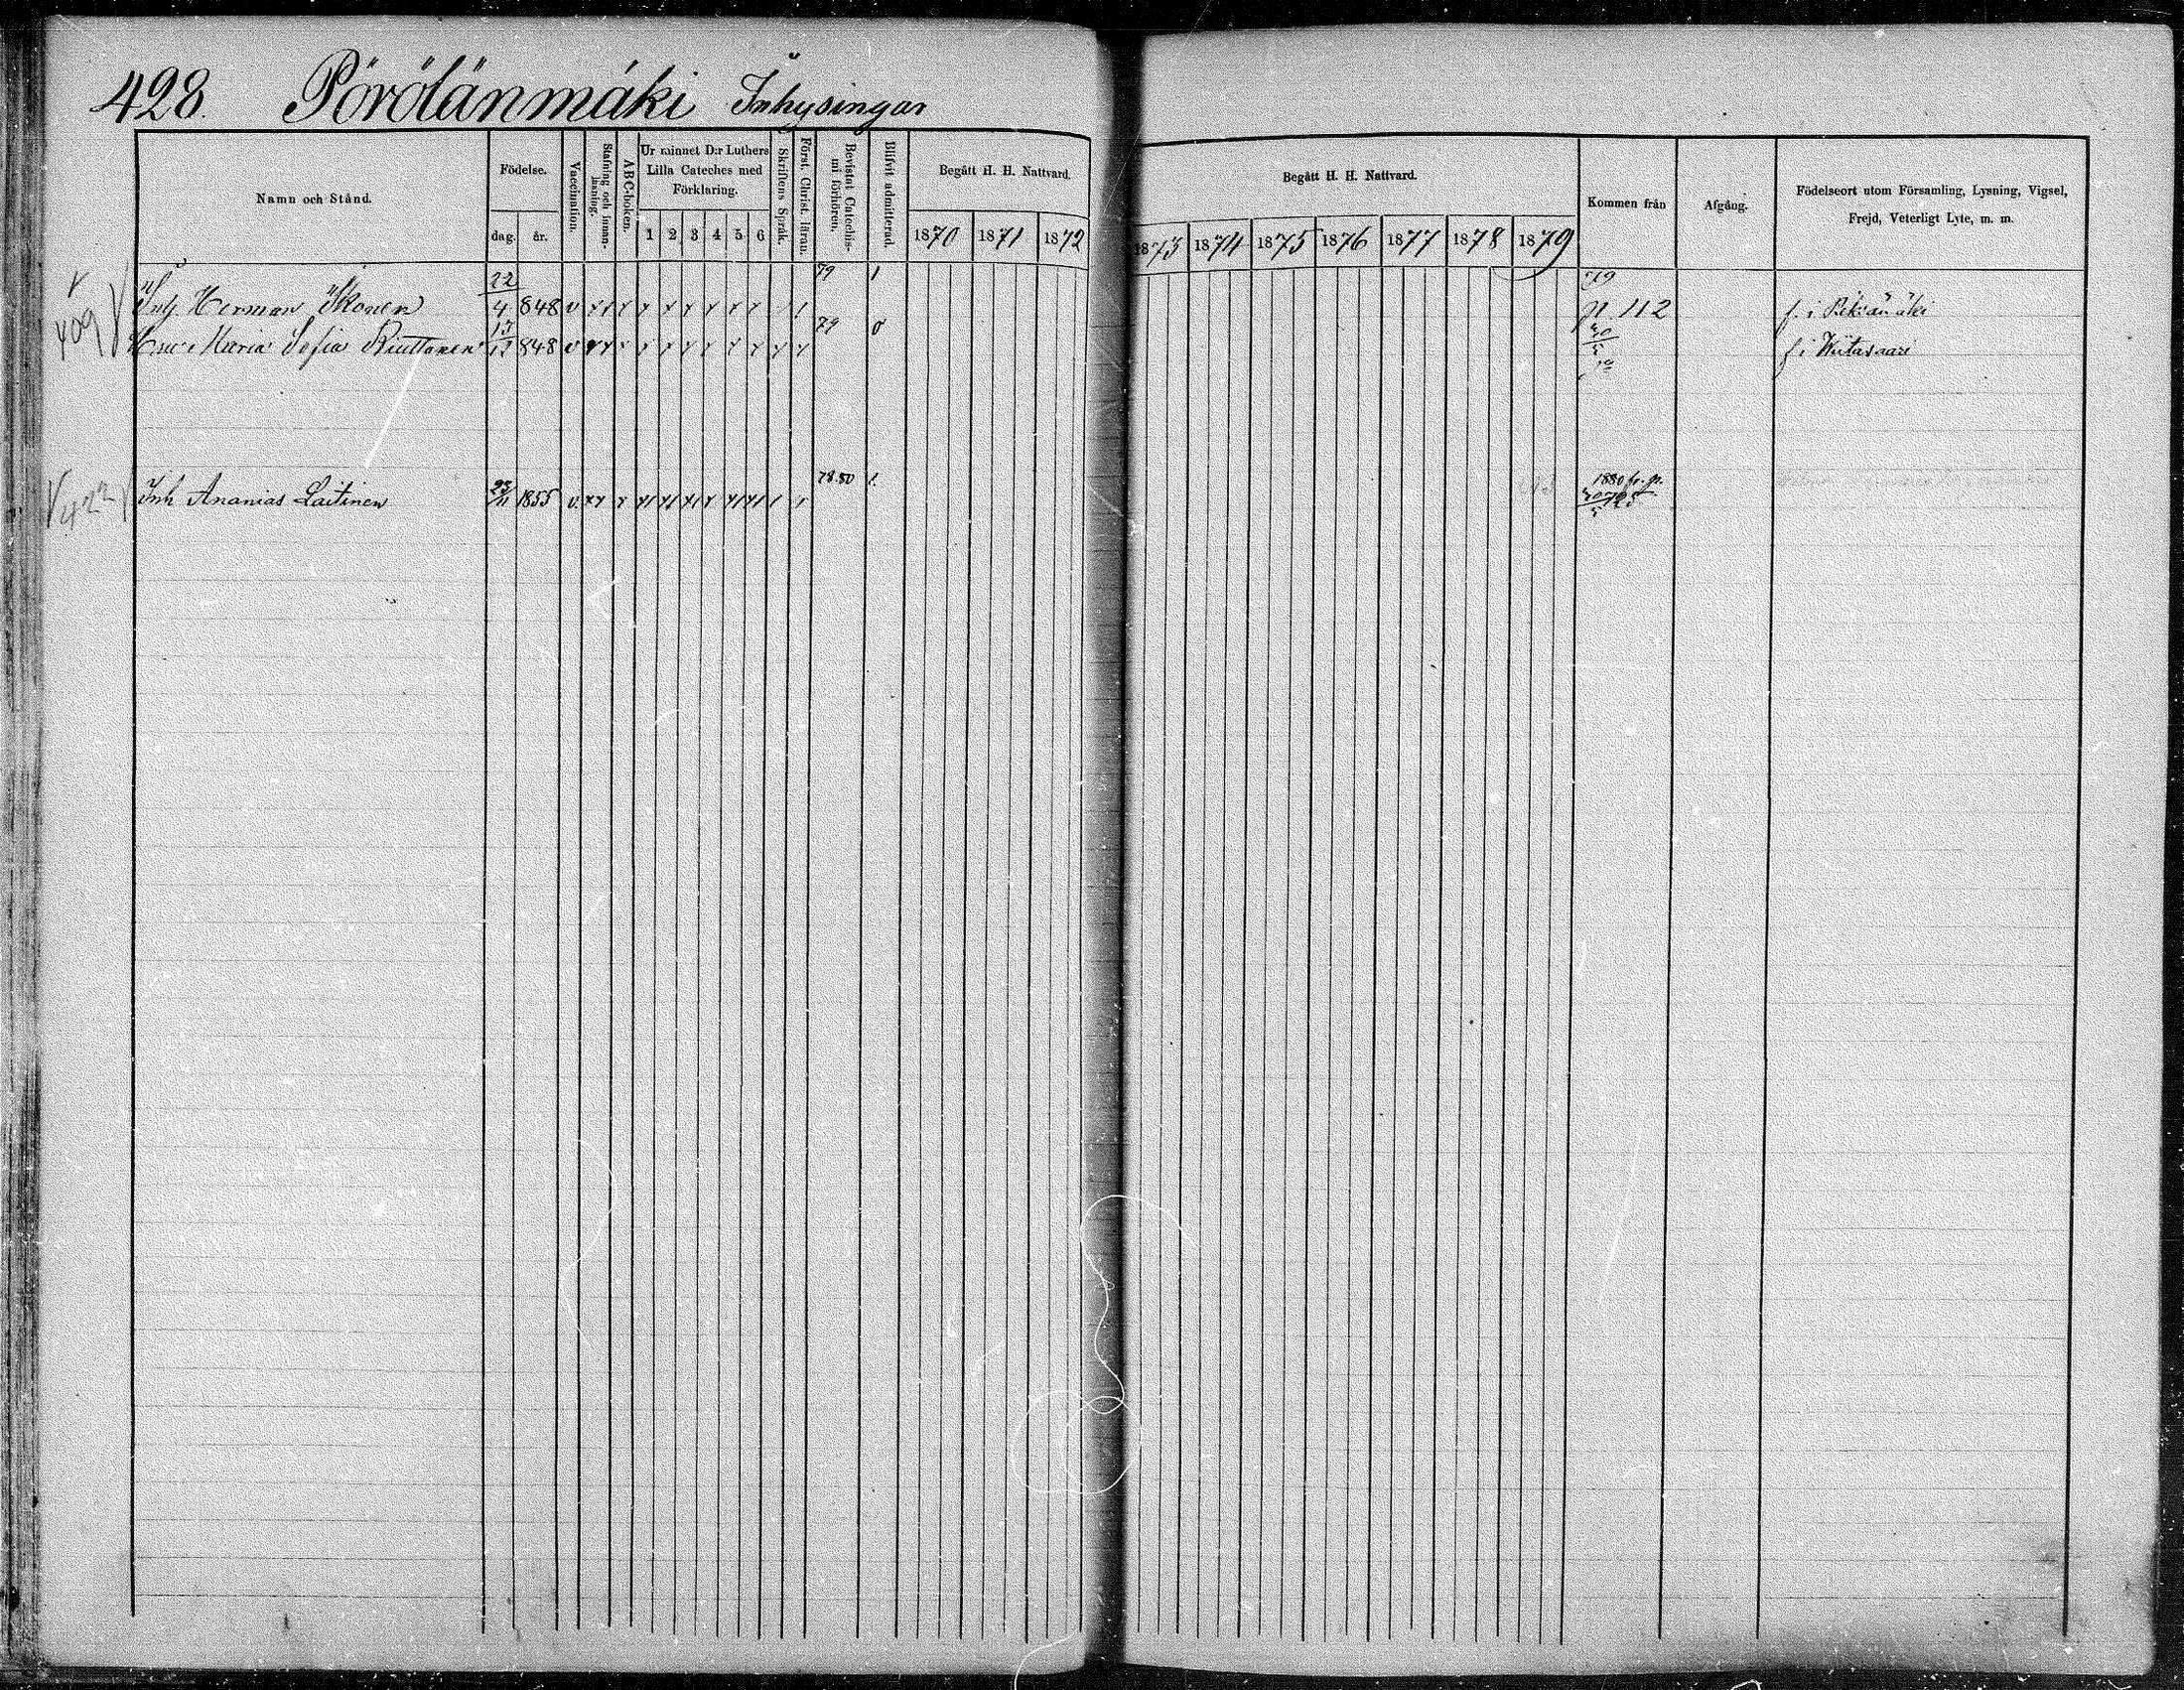 428. Pörölänmäki Inhysingar
Namn och Stånd.
Födelse.
dag. år.
Vaccination.
Stafning och innanläsning.
ABC-boken.
Ur minnet D:r Luthers Lilla Cateches med Förklaring.
1 2 3 4 5 6
Skriftens Språk.
Först. Christ. läran.
Bevistat Catechismi förhören.
Blifvit admitterad.
Begått H. H. Nattvard.
1870 1871 1872
Begått H. H. Nattvard.
1873 1874 1875 1876 1877 1878 1879
Kommen från
Afgång.
Födelseort utom Församling, Lysning, Vigsel,
Frejd, Veterligt Lyte, m. m.
409 Inh. Herman Ikonen 22/4 848 v 79 1 79 p. 112 f. i Pieksämäki
Hu Maria Sofia Ruuttonen 848 v 79 f i Wiitasaari
422 Inh Ananias Laitinen 23/11 1855 v. 78.80 1. 1880 fr. p. 725